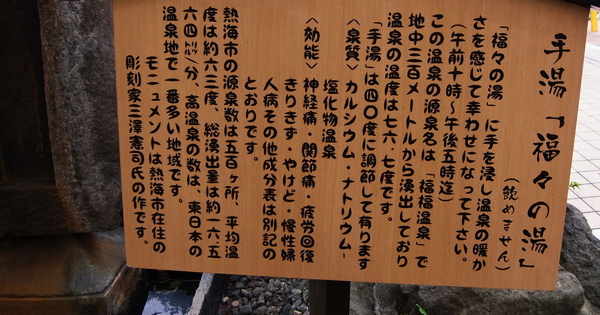 手湯「福々の湯」
(飲めません)
「福々の湯」に手を浸し温泉の暖か
さを感じて幸わせになって下さい。
(午前十時〜午後五時迄)
この温泉の源泉名は「福福温泉」で
地中三百メートルから湧出しており
温泉の温度は七六.七度です。
「手湯」は四〇度に調節して有ります
〈泉質〉カルシウム・ナトリウム−
塩化物温泉
〈効能〉神経痛・関節痛・疲労回復
きりきず・やけど・慢性婦
人病その他成分表は別記の
とおりです。
熱海市の源泉数は五百ヶ所、平均温
度は約六三度、総湧出量は約一六、五
六四㍑/分、高温泉の数は、東日本の
温泉地で一番多い地域です。
モニュメントは熱海市在住の
彫刻家三澤憲司氏の作です。